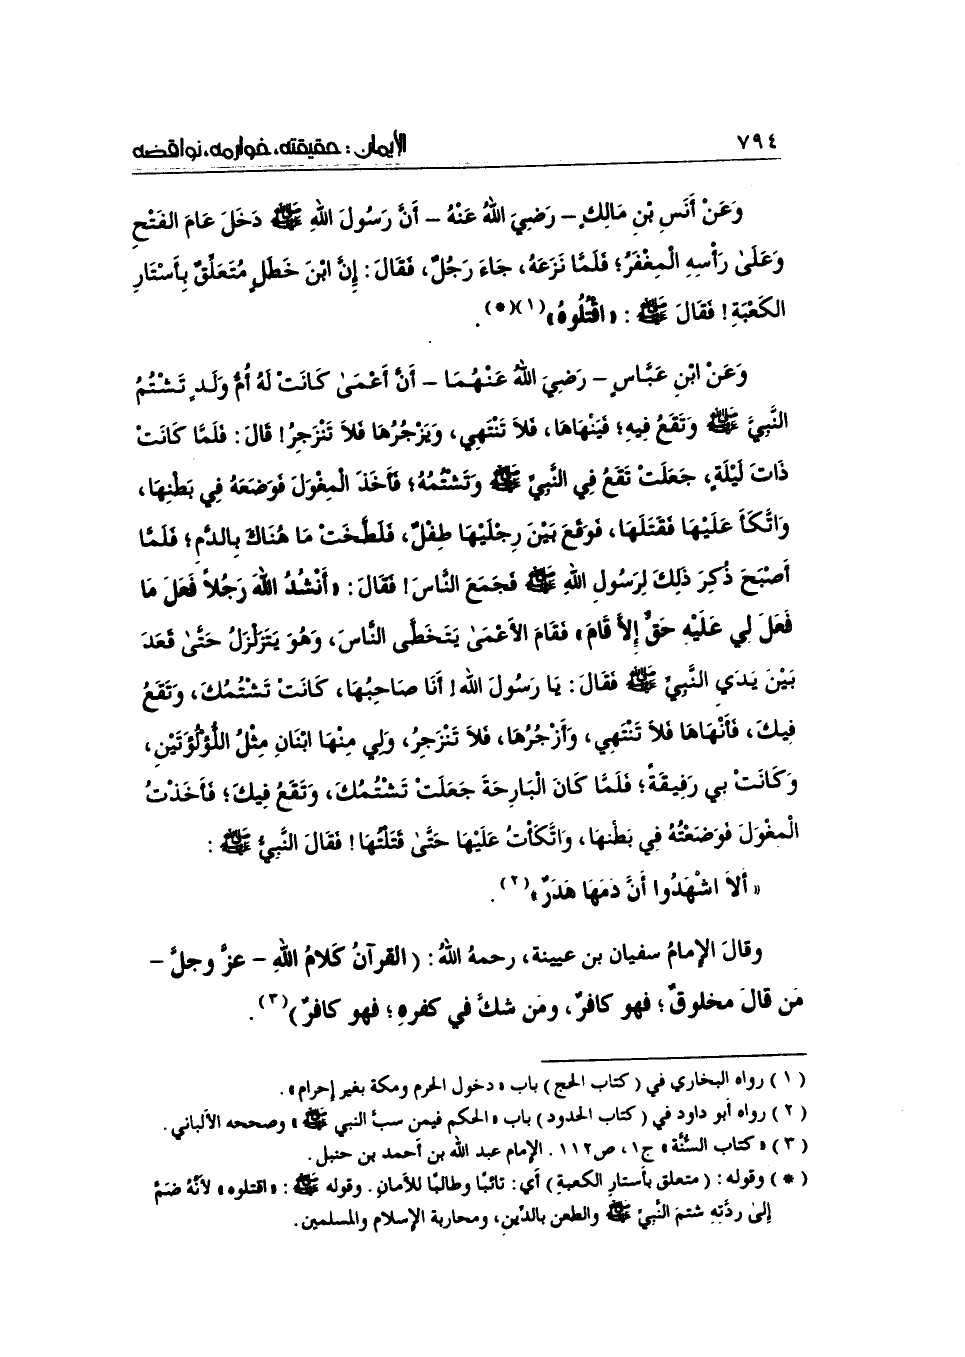 ٧٩٤
الإيمان: حقيقته، خوارمه، نواقضه
وَعَنْ أَنَسِ بْنِ مَالِكٍ – رَضِيَ اللهُ عَنْهُ – أَنَّ رَسُولَ اللهِ ﷺ دَخَلَ عَامَ الفَتْحِ
وَعَلَىٰ رَأْسِهِ الْمِغْفَرُ؛ فَلَمَّا نَزَعَهُ، جَاءَ رَجُلٌ، فَقَالَ: إِنَّ ابْنَ خَطَلٍ مُتَعَلِّقٌ بِأَسْتَارِ
الكَعْبَةِ! فَقَالَ ﷺ: «اقْتُلُوهُ»(١)(*).
وَعَنْ ابْنِ عَبَّاسٍ – رَضِيَ اللهُ عَنْهُمَا – أَنَّ أَعْمَىٰ كَانَتْ لَهُ أُمُّ وَلَدٍ تَشْتُمُ
النَّبِيَّ ﷺ وَتَقَعُ فِيهِ؛ فَيَنْهَاهَا، فَلاَ تَنْتَهِي، وَيَزْجُرُهَا فَلاَ تَنْزَجِرُ! قَالَ: فَلَمَّا كَانَتْ
ذَاتَ لَيْلَةٍ، جَعَلَتْ تَقَعُ فِي النَّبِيِّ ﷺ وَتَشْتُمُهُ؛ فَأَخَذَ الْمِغْوَلَ فَوَضَعَهُ فِي بَطْنِهَا،
وَاتَّكَأَ عَلَيْهَا فَقَتَلَهَا، فَوَقَعَ بَيْنَ رِجْلَيْهَا طِفْلٌ، فَلَطَّخَتْ مَا هُنَاكَ بِالدَّمِ؛ فَلَمَّا
أَصْبَحَ ذُكِرَ ذَلِكَ لِرَسُولِ اللهِ ﷺ فَجَمَعَ النَّاسَ! فَقَالَ: «أَنْشُدُ اللهَ رَجُلاً فَعَلَ مَا
فَعَلَ لِي عَلَيْهِ حَقٌّ إِلاَّ قَامَ» فَقَامَ الأَعْمَىٰ يَتَخَطَّى النَّاسَ، وَهُوَ يَتَزَلْزَلُ حَتَّىٰ قَعَدَ
بَيْنَ يَدَيِ النَّبِيِّ ﷺ فَقَالَ: يَا رَسُولَ الله! أَنَا صَاحِبُهَا، كَانَتْ تَشْتُمُكَ، وَتَقَعُ
فِيكَ، فَأَنْهَاهَا فَلاَ تَنْتَهِي، وَأَزْجُرُهَا، فَلاَ تَنْزَجِرُ، وَلِي مِنْهَا ابْنَانِ مِثْلُ اللُّؤْلُؤَتَيْنِ،
وَكَانَتْ بِي رَفِيقَةً؛ فَلَمَّا كَانَ الْبَارِحَةَ جَعَلَتْ تَشْتُمُكَ، وَتَقَعُ فِيكَ؛ فَأَخَذْتُ
الْمِغْوَلَ فَوَضَعْتُهُ فِي بَطْنِهَا، وَاتَّكَأْتُ عَلَيْهَا حَتَّىٰ قَتَلْتُهَا! فَقَالَ النَّبِيُّ ﷺ:
«أَلاَ اشْهَدُوا أَنَّ دَمَهَا هَدَرٌ»(٢).
وقالَ الإمامُ سفيان بن عيينة، رحمهُ اللهُ: (القرآنُ كَلامُ اللهِ – عزَّ وجلَّ –
مَن قالَ مخلوقٌ؛ فهو كافرٌ، ومَن شكَّ في كفرهِ؛ فهو كافرٌ)(٣).
(١) رواه البخاري في (كتاب الحج) باب «دخول الحرم ومكة بغير إحرام».
(٢) رواه أبو داود في (كتاب الحدود) باب «الحكم فيمن سبَّ النبي ﷺ» وصححه الألباني.
(٣) «كتاب السُّنَّة» ج١، ص١١٢. الإمام عبد الله بن أحمد بن حنبل.
(*) وقوله: (متعلق بأستارِ الكعبةِ) أي: تائبًا وطالبًا للأمانِ. وقوله ﷺ: «اقتلوه» لأنَّهُ ضَمَّ
إلىٰ ردَّتِهِ شتمَ النَّبيِّ ﷺ والطعن بالدِّينِ، ومحاربة الإسلام والمسلمين.